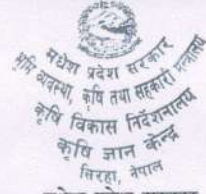 मधेश प्रदेश सरकार
भूमि व्यवस्था, कृषि तथा सहकारी मन्त्रालय
कृषि विकास निर्देशनालय
कृषि ज्ञान केन्द्र
सिरहा, नेपाल